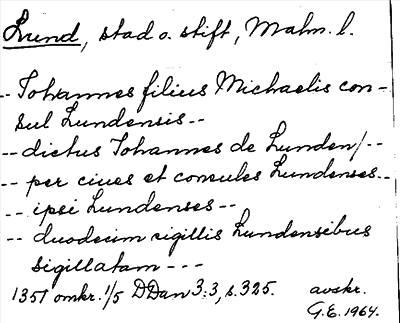 Lund, stad o. stift, Malm. l.
-- Johannes filius Michaelis con-
sul Lundensis --
-- dictus Johannes de Lunden/--
-- per ciues et consules Lundenses --
-- ipsi Lundenses --
-- duodecim sigillis Lundensibus
sigillatam - - -
1351 omkr. 1/5 DDan 3:3, s. 325. avskr.
G.E. 1964.